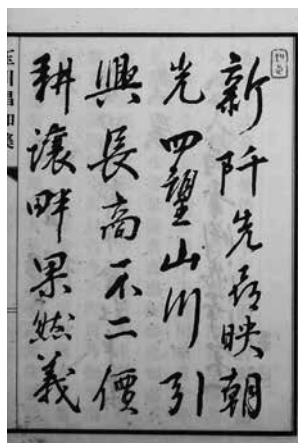 新阡先映朝
光四望山川引
興長高不二價
耕讓畔果然義